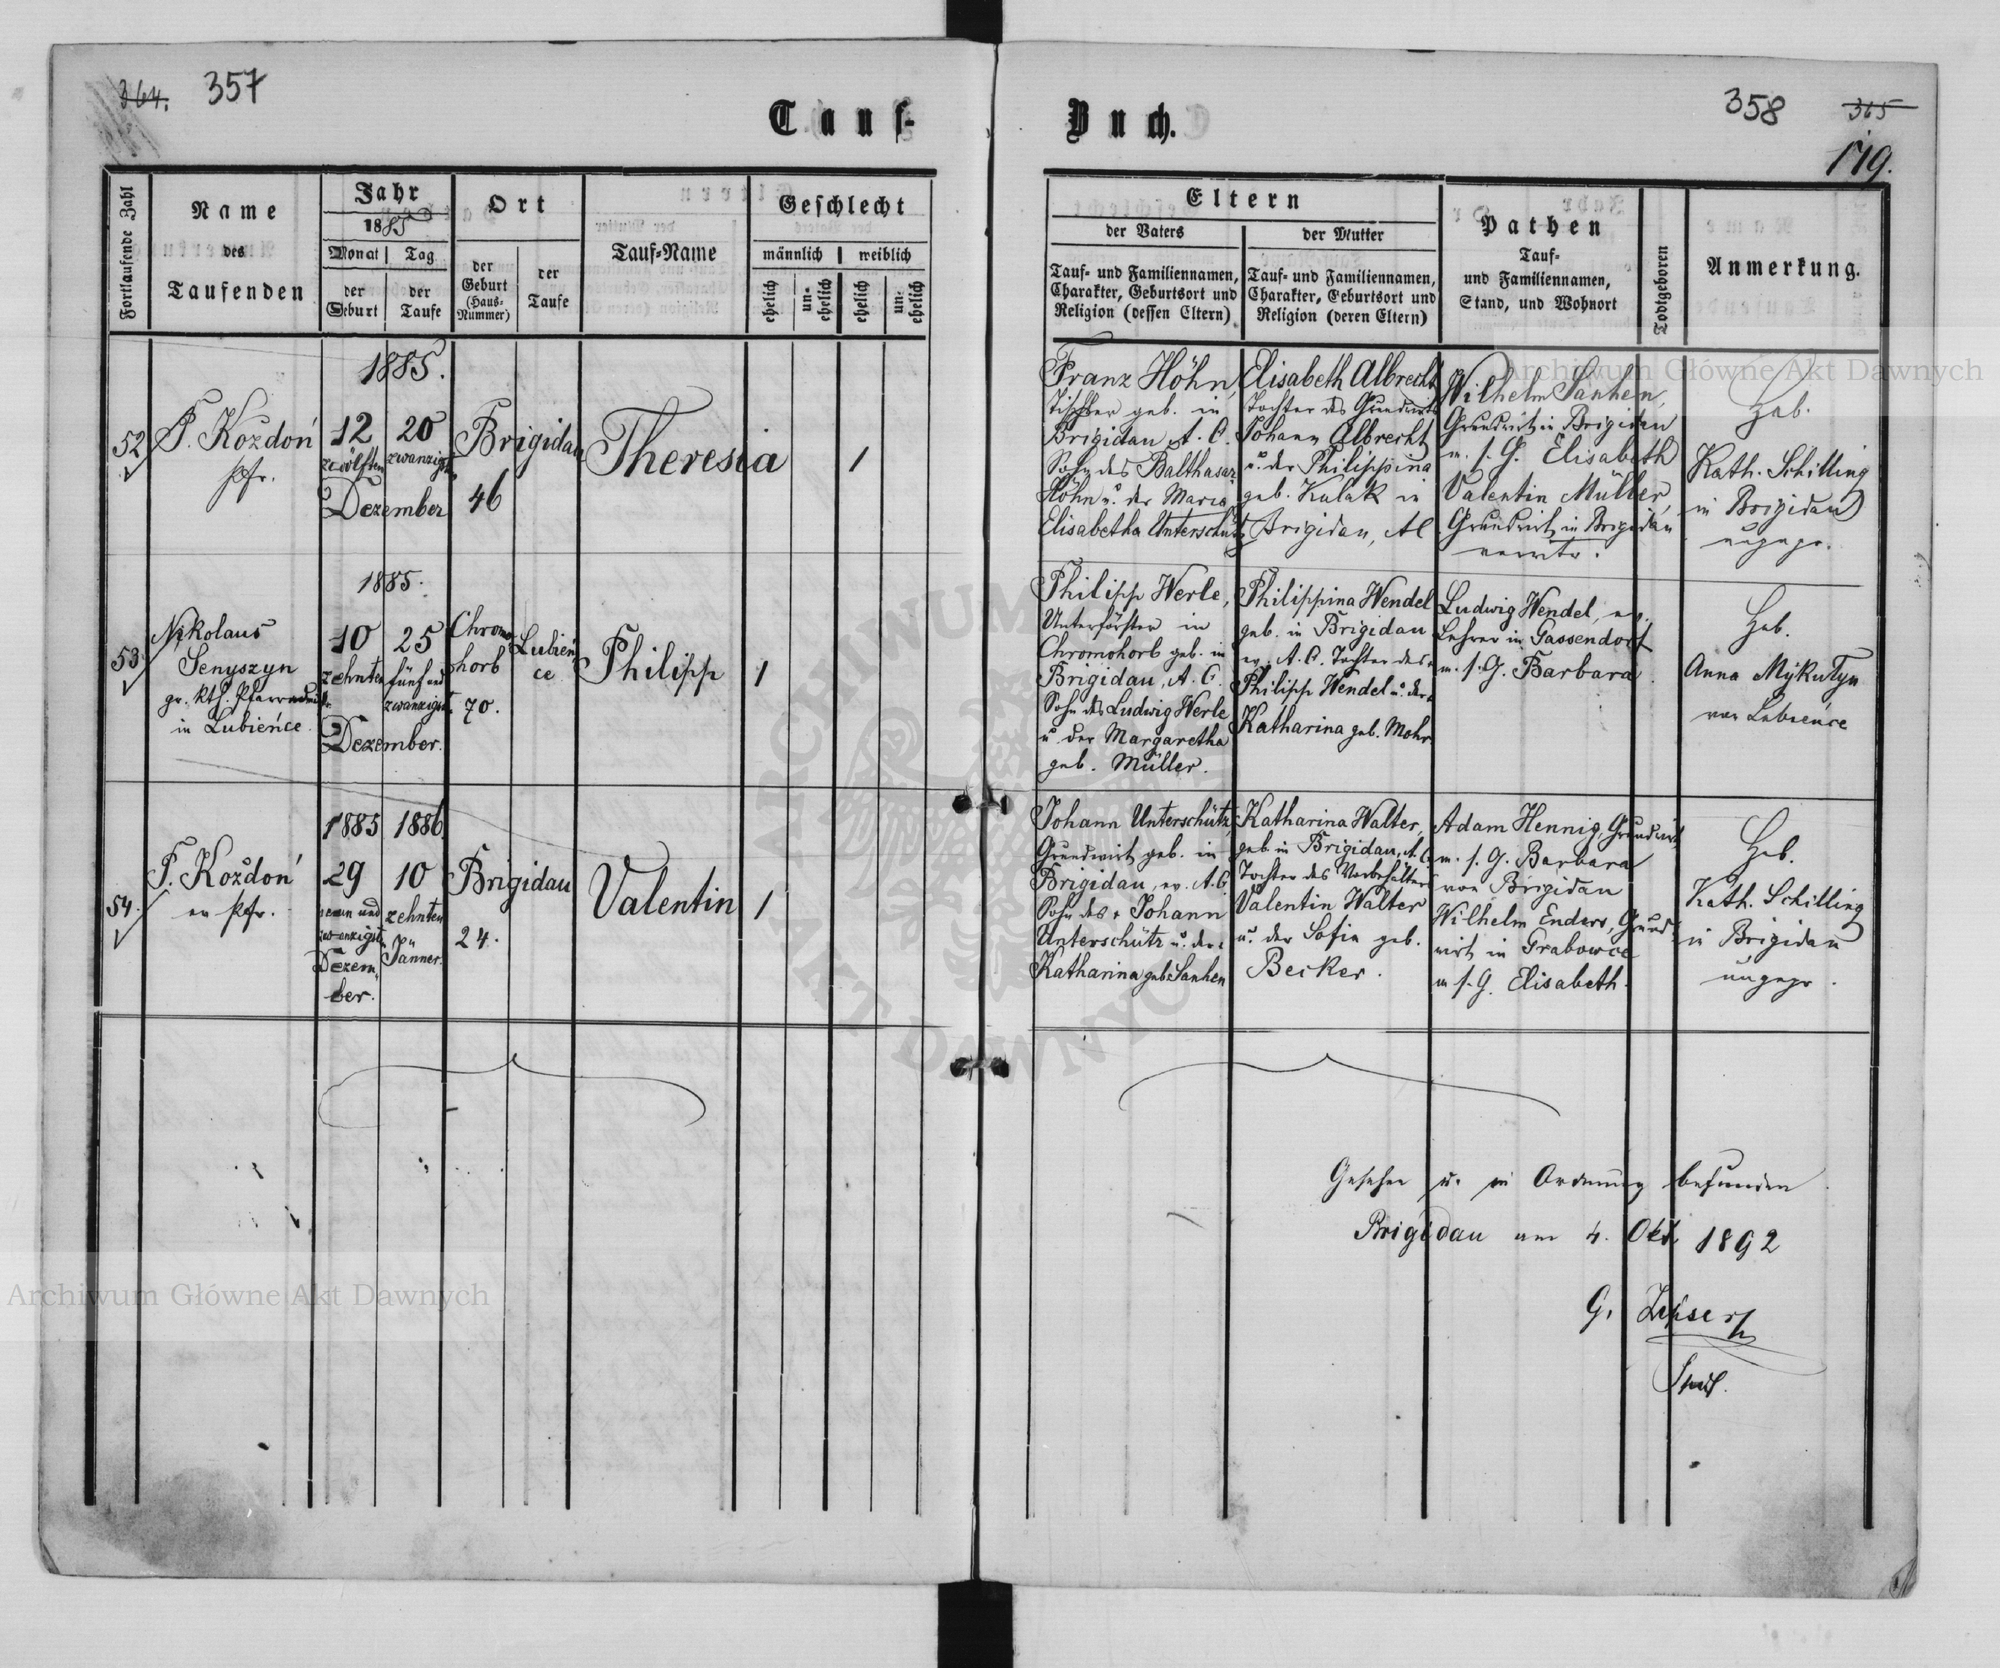 364.
357
Tauf-
Buch.
358
365
179.
Fortlaufende Zahl
Name
des
Taufenden
Jahr
1885
Monat
Tag
der
Geburt
der
Taufe
Ort
der
Geburt
(Haus-
Nummer)
der
Taufe
Tauf-Name
Geschlecht
männlich
weiblich
ehelich
un-
ehelich
ehelich
un-
ehelich
Eltern
der Vaters
Tauf- und Familiennamen,
Charakter, Geburtsort und
Religion (dessen Eltern)
der Mutter
Tauf- und Familiennamen,
Charakter, Geburtsort und
Religion (deren Eltern)
Pathen
Tauf-
und Familiennamen,
Stand, und Wohnort
Todtgeboren
Anmerkung.
52
F. Koždoń
Pfr.
1885.
12
zwölften
20
zwanzigst.
Dezember
Brigidau
46
Theresia
1
Franz Höhn,
Tischler geb. in
Brigidau A. C.
Sohn des Balthasar
Höhn u. der Maria
Elisabetha Unterschütz
Elisabeth Albrecht
Tochter des Grundwirts
Johann Albrecht
u. der Philippina
geb. Kulak in
Brigidau, AC
Wilhelm Sanhen,
Grundwirt in Brigidau
m. s. G. Elisabeth
Valentin Müller
Grundwirt in Brigidau
Heb.
Kath. Schilling
in Brigidau
ungepr.
53
Nikolaus
Senyszyn
gr. kth. Pfarradmstr.
in Lubieńce
1885.
10
zehnten
25
fünf und
zwanzigst.
Dezember.
Chromo
horb
70.
Lubień
ce
Philipp
1
Philipp Werle,
Unterförster in
Chromohorb geb. in
Brigidau, A. C.
Sohn des Ludwig Werle
u der Margaretha
geb. Müller.
Philippina Wendel
geb. in Brigidau
ev. A. C. Tochter des
Philipp Wendel u. der
Katharina geb. Mohr.
Ludwig Wendel, ev.
Lehrer in Gassendorf
m. s. G. Barbara
Heb.
Anna Mykutyn
von Lubieńce
54.
F. Koždoń
ev Pfr.
1885
29
neun und
zwanzigst.
Dezem-
ber.
1886
10
zehnten
Jänner.
Brigidau
24.
Valentin
1
Johann Unterschütz,
Grundwirt geb. in
Brigidau, ev. A.C.
Sohn des + Johann
Unterschütz u. der
Katharina geb Sanhen
Katharina Walter,
geb. in Brigidau, A. C.
Tochter des Vorbehälters
Valentin Walter
u. der Sofia geb.
Becker.
Adam Hennig, Grundwirt
m. s. G. Barbara
von Brigidau
Wilhelm Enders, Grund-
wirt in Grabowce
m s. G. Elisabeth.
Heb.
Kath. Schilling
in Brigidau
ungepr.
Gesehen u. in Ordnung befunden
Brigidau am 4. Okt 1892
G.
Archiwum Główne Akt Dawnych
Archiwum Główne Akt Dawnych